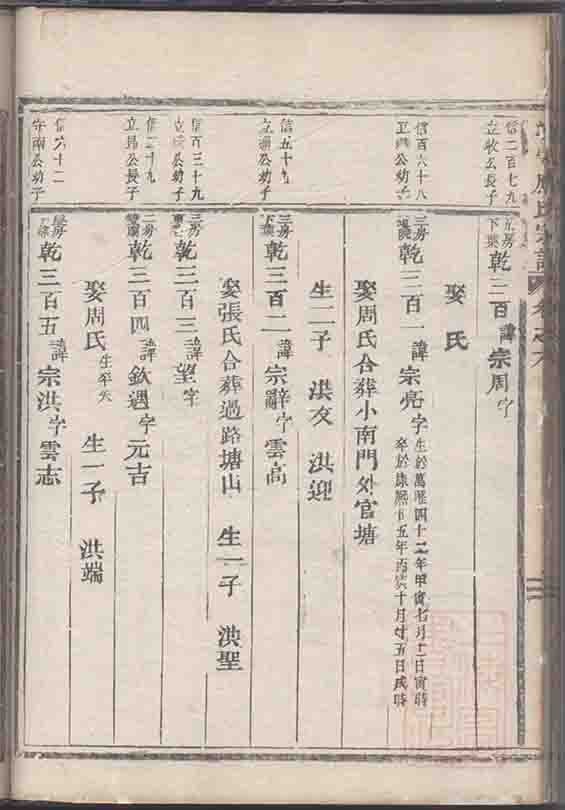 周氏宗譜
信二百七九
立牧公長子
五房
下葉
乾三百諱宗周字
娶氏
信百六十八
公幼子
三房
乾三百一諱宗亮字生於萬曆四十二年甲寅七月十二日寅時
卒於康熙廿五年丙寅十月廿五日戌時
娶周氏合葬小南門外官塘
生二子 洪文 洪迎
信五十九
立 公幼子
三房
下葉
乾三百二諱宗辭字雲高
娶張氏合葬過路塘山 生一子 洪聖
信百三十九
立 公幼子
三房
乾三百三諱望字
信二十九
立昂公長子
二房
雙廟
乾三百四諱欽遇字元吉
娶周氏生卒失 生一子 洪端
信六十二
守南公幼子
乾三百五諱宗洪字雲志